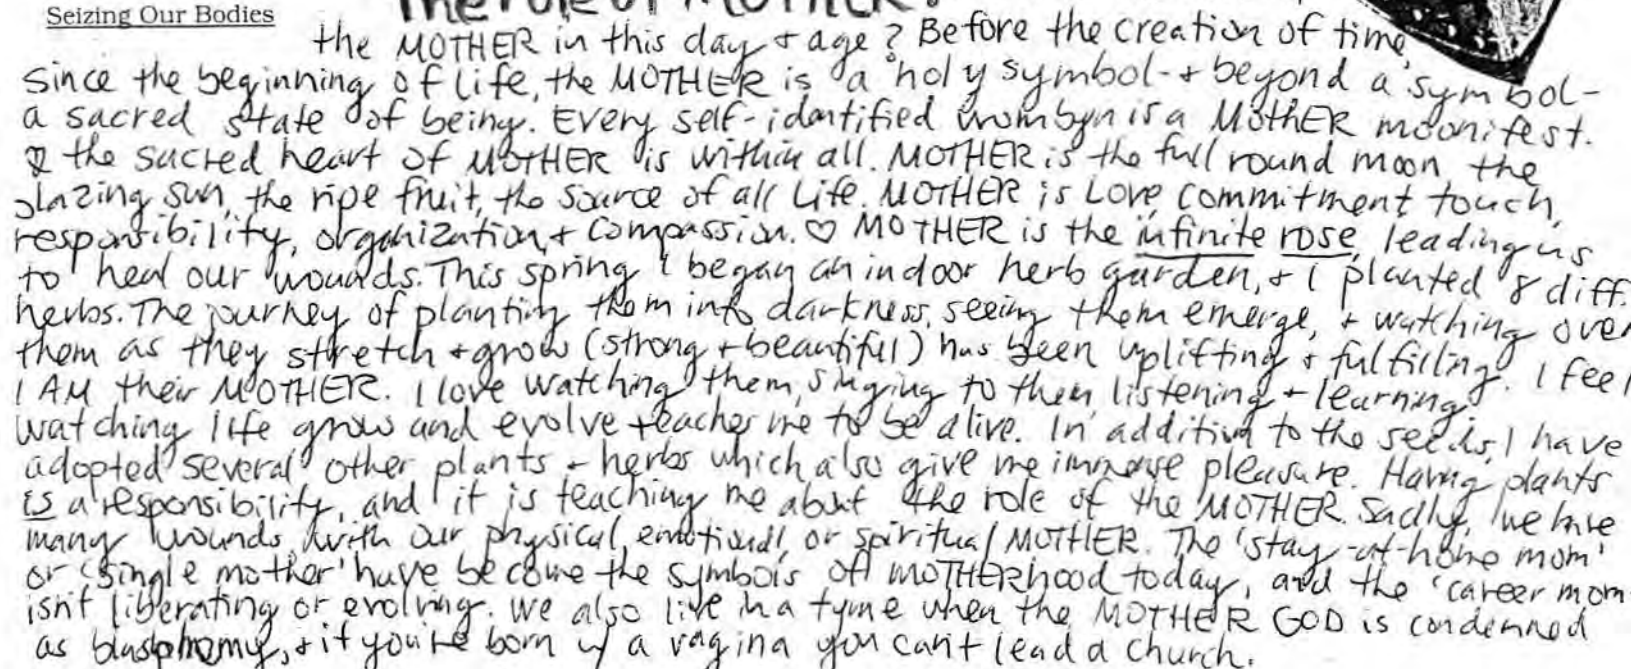 Seizing Our Bodies
The role of MOTHER?
the MOTHER in this day + age? Before the creation of time,
since the beginning of life, the MOTHER is a holy symbol - + beyond a symbol -
a sacred state of being. Every self-identified wombyn is a MOTHER moonifest.
& the sacred heart of MOTHER is within all. MOTHER is the full round moon, the
blazing sun, the ripe fruit, the source of all life. MOTHER is Love, commitment touch,
responsibility, organization, + compassion. ♡ MOTHER is the infinite rose, leading us
to heal our wounds. This spring I began an indoor herb garden, + I planted 8 diff.
herbs. The journey of planting them into darkness, seeing them emerge, + watching over
them as they stretch + grow (strong + beautiful) has been uplifting + fulfilling. I feel
I AM their MOTHER. I love watching them, singing to them, listening + learning.
Watching life grow and evolve teaches me to be alive. In addition to the seeds, I have
adopted several other plants + herbs which also give me immense pleasure. Having plants
is a responsibility, and it is teaching me about the role of the MOTHER. Sadly, we have
many wounds with our physical, emotional, or spiritual MOTHER. The 'stay-at-home mom'
or 'single mother' have become the symbols of MOTHERhood today, and the 'career mom
isn't liberating or evolving. We also live in a tyme when the MOTHER GOD is condemned
as blasphemy, + if you're born w/ a vagina you can't lead a church.